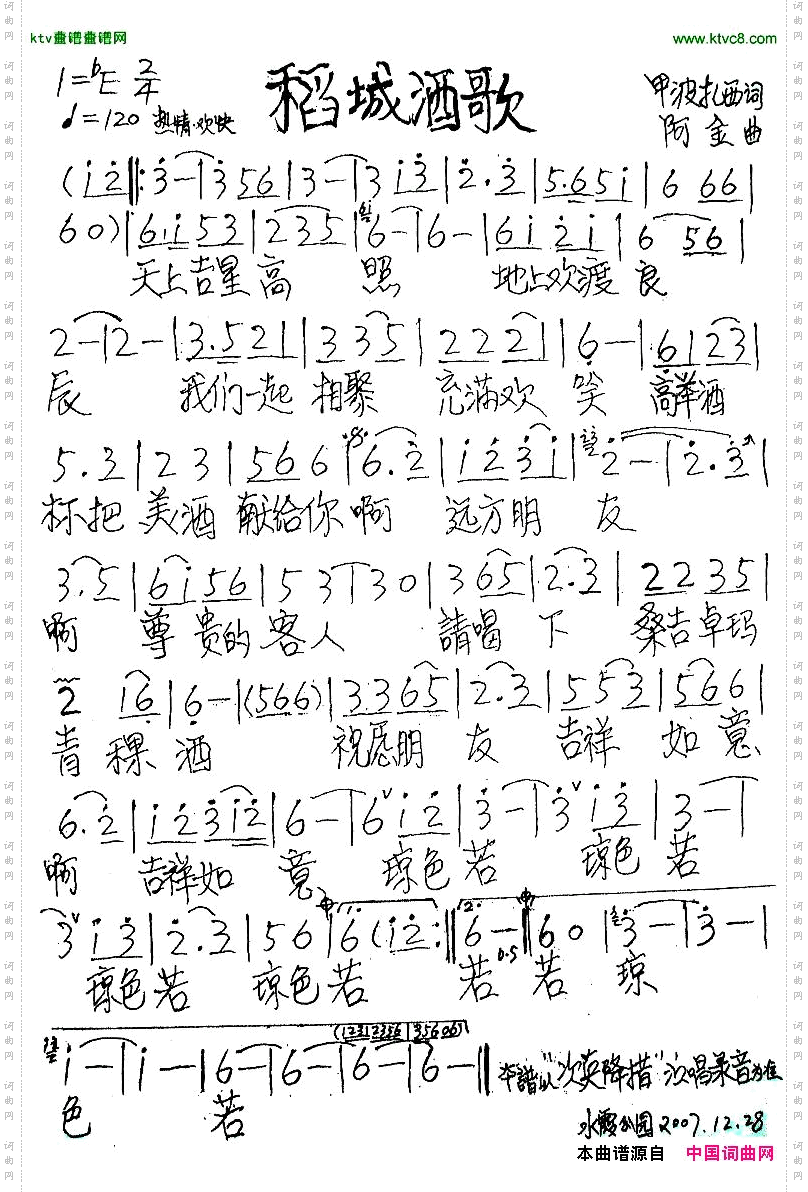 ktv歌谱简谱网
www.ktvc8.com
1=♭E 2/4
稻城酒歌
甲波扎西词
♩=120 热情.欢快
阿金曲
(i̇ 2̇ ‖: 3̇ — | 3̇ 5 6 | 3 — | 3 i̇ 3̇ | 2̇ . 3̇ | 5 . 6 5 i̇ | 6 6 6 |
6 0) | 6 . i̇ 5 3 | 2 3 5 | 6 — | 6 — | 6 i̇ 2̇ i̇ | 6 5 6 |
天上吉星高 照 地上欢渡良
2 — | 2 — | 3 . 5 2 1 | 3 3 5 | 2 2 2 | 6̣ — | 6̣ 1 2 3 |
辰 我们一起 相聚 充满欢 笑 高举酒
5 . 3 | 2 3 | 5 6 6 | 6 . 2̇ | i̇ 2̇ 3̇ i̇ | 2̇ — | 2̇ . 3̇ |
杯把 美酒 献给你 啊 远方朋 友
3 . 5 | 6 i̇ 5 6 | 5 3 | 3 0 | 3 6 5 | 2 . 3 | 2 2 3 5 |
啊 尊贵的 客人 請喝 下 桑吉卓玛
2 1 6̣ | 6̣ — | (5 6 6) | 3 3 6 5 | 2 . 3 | 5 5 3 | 5 6 6 |
青稞 酒 祝愿朋 友 吉祥 如意
6 . 2̇ | i̇ 2̇ 3̇ i̇ 2̇ | 6 — | 6 ∨ i̇ 2̇ | 3̇ — | 3̇ ∨ i̇ 3̇ | 3 — |
啊 吉祥如 意 琼色若 琼色 若
3̇ ∨ i̇ 3̇ | 2̇ . 3 | 5 6 | 6 (i̇ 2̇ :‖ 6 — ‖ 6 0 | 3̇ — | 3̇ — |
琼色若 琼色若 若 若 琼
(1 2 3 1 2 3 5 6 | 3 5 6 6 0)
i̇ — | i̇ — | 6 — | 6 — | 6 — | 6 — ‖ 本譜以“次英降措”演唱录音为准
色 若
水霞公园2007.12.28
本曲谱源自 中国词曲网
词曲网